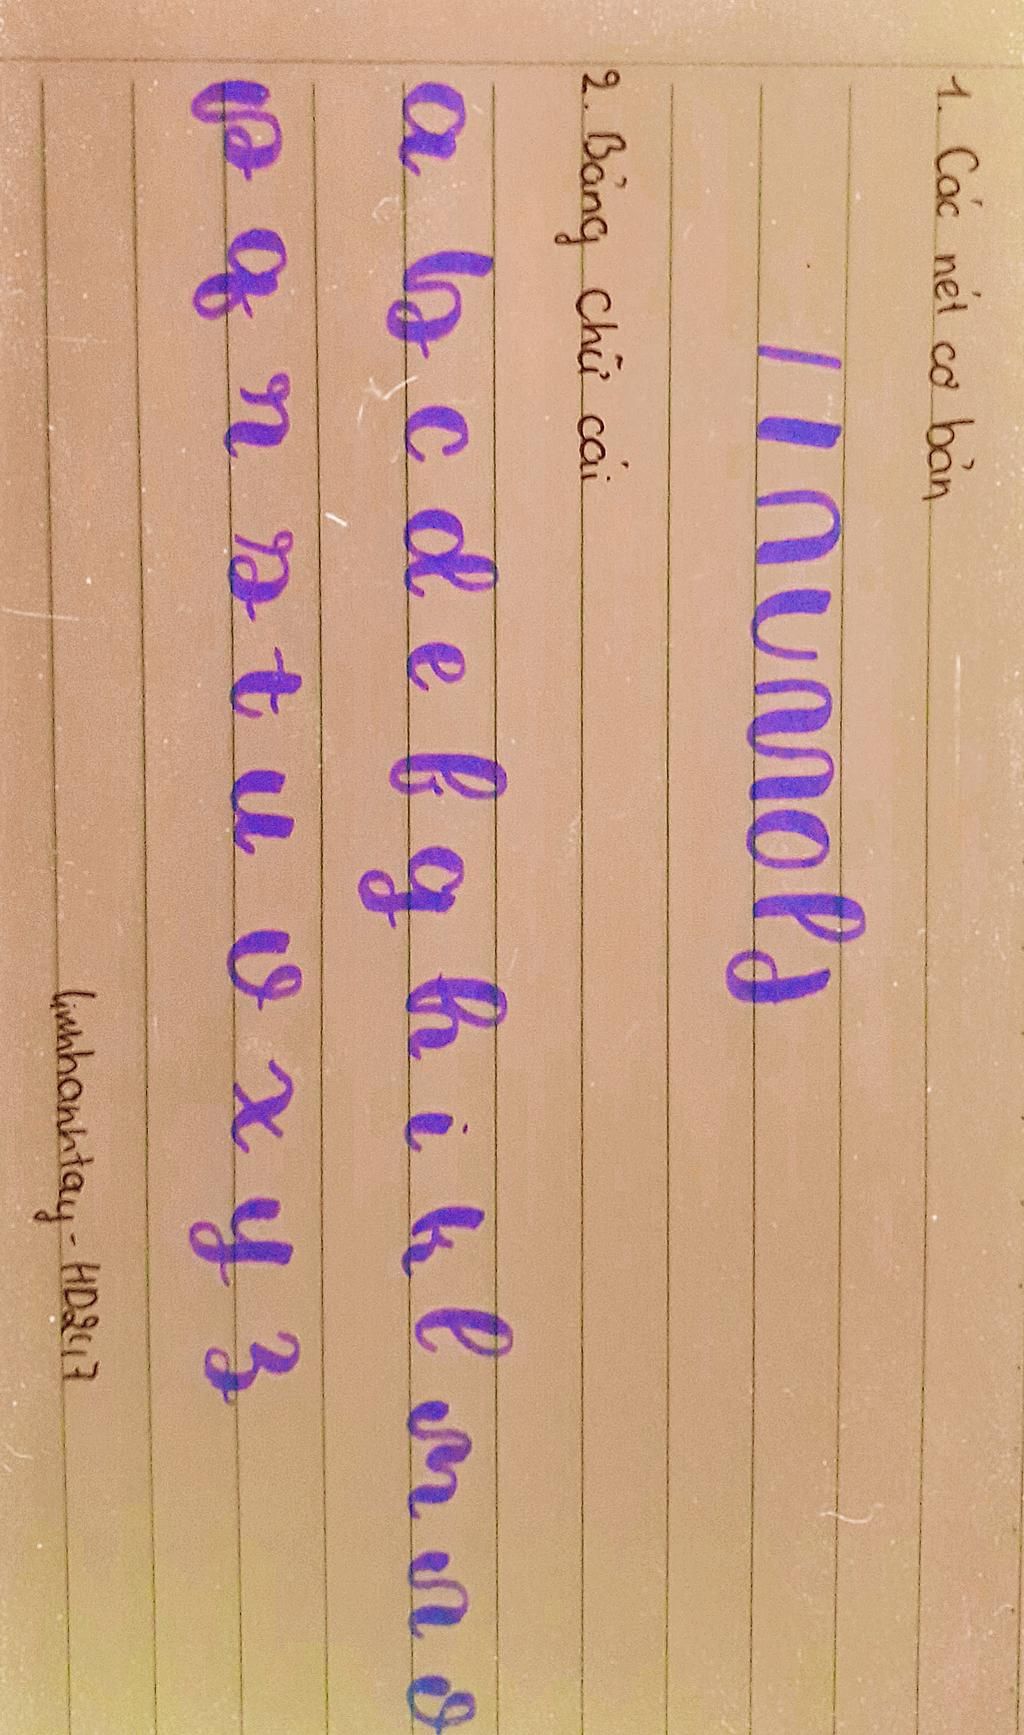 1. Các nét cơ bản
2. Bảng chữ cái
a b c d e f g h i k l m n o
p q r s t u v x y z
linhhanhtay - HD2417